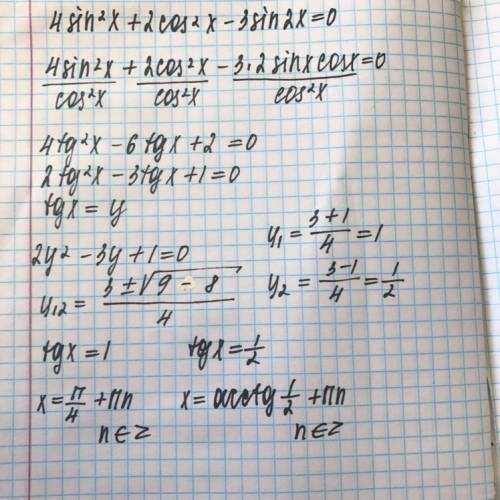 4sin²x + 2cos²x - 3sin2x = 0
4sin²x/cos²x + 2cos²x/cos²x - 3·2sinxcosx/cos²x = 0
4tg²x - 6tgx + 2 = 0
2tg²x - 3tgx + 1 = 0
tgx = y
2y² - 3y + 1 = 0
y₁,₂ = (3 ± √(9 - 8))/4
y₁ = (3+1)/4 = 1
y₂ = (3-1)/4 = 1/2
tgx = 1 tgx = 1/2
x = π/4 + πn x = arctg 1/2 + πn
n∈Z n∈Z